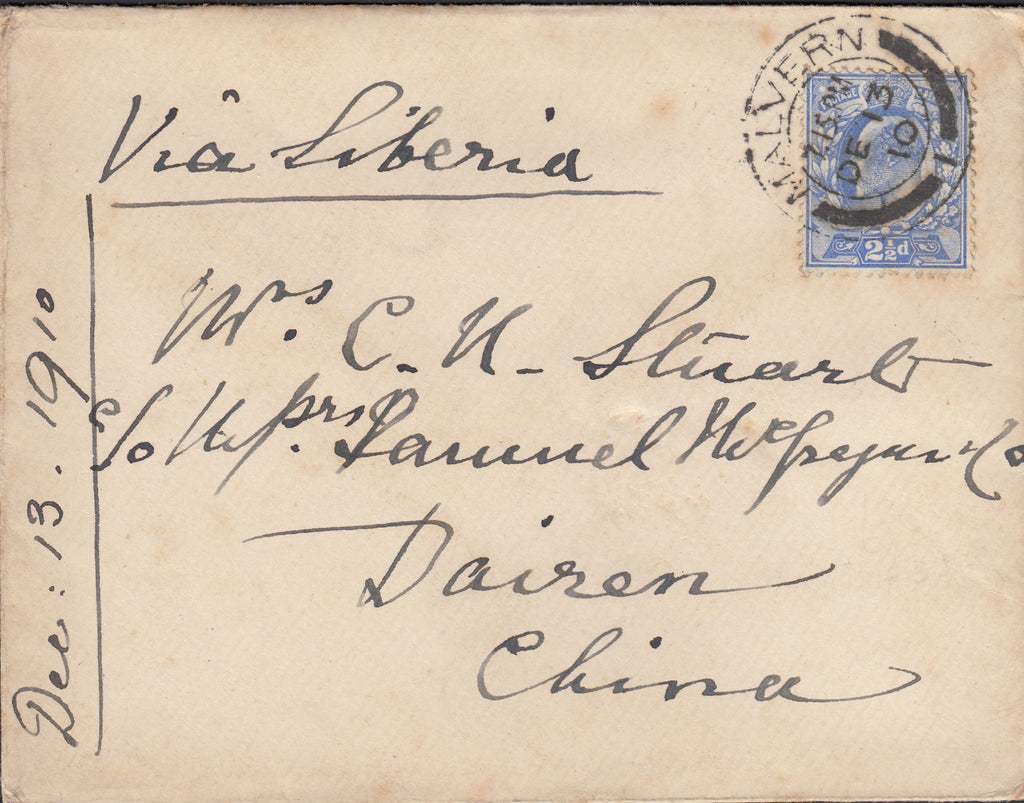 MALVERN
7.15 PM
DE 13
10
1
2½d
Via Siberia
Mrs. C. H. Stuart
c/o Messrs. Samuel McGregor & Co
Dairen
China
Dec: 13. 1910